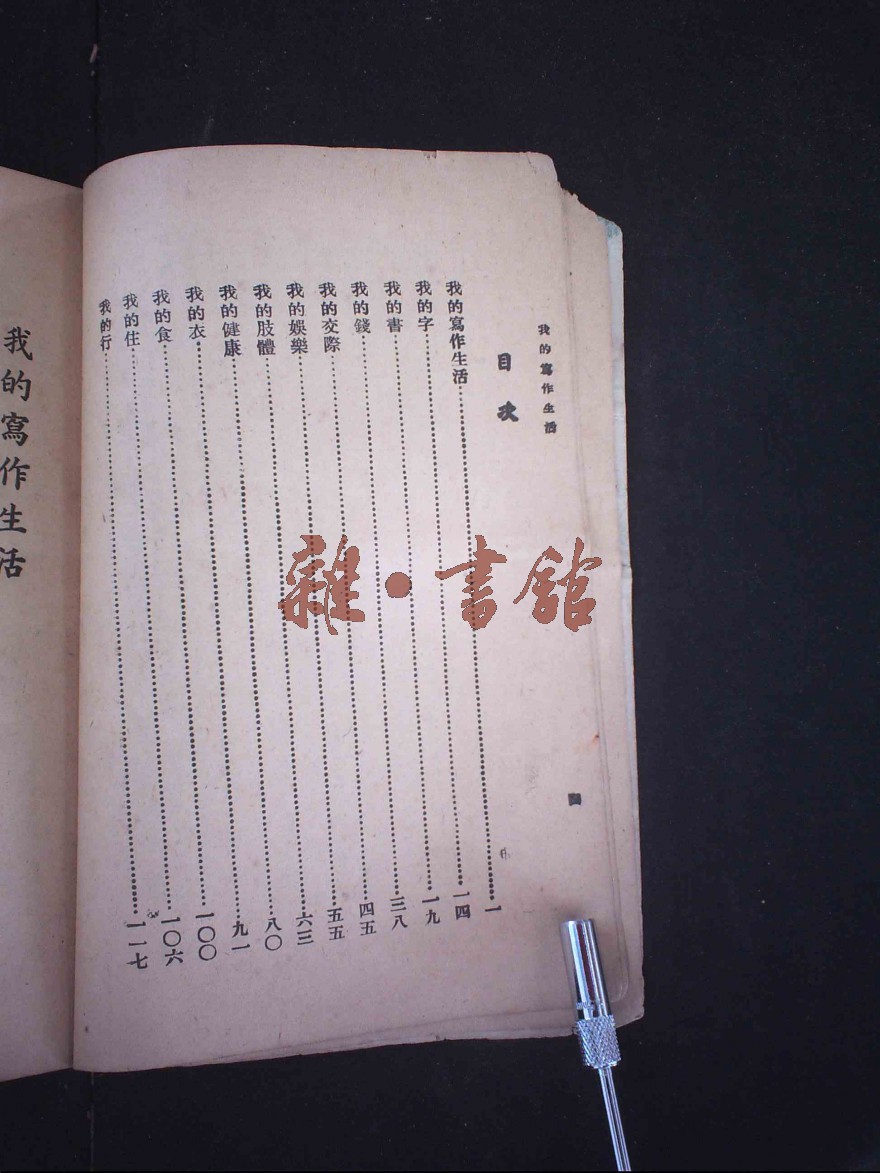 我的寫作生活
目次
我的寫作生活……一
我的字……一四
我的書……一九
我的錢……三八
我的交際……四五
我的娛樂……五五
我的肢體……六三
我的健康……八〇
我的衣……九一
我的食……一〇〇
我的住……一〇六
我的行……一一七
我的寫作生活
雜·書館